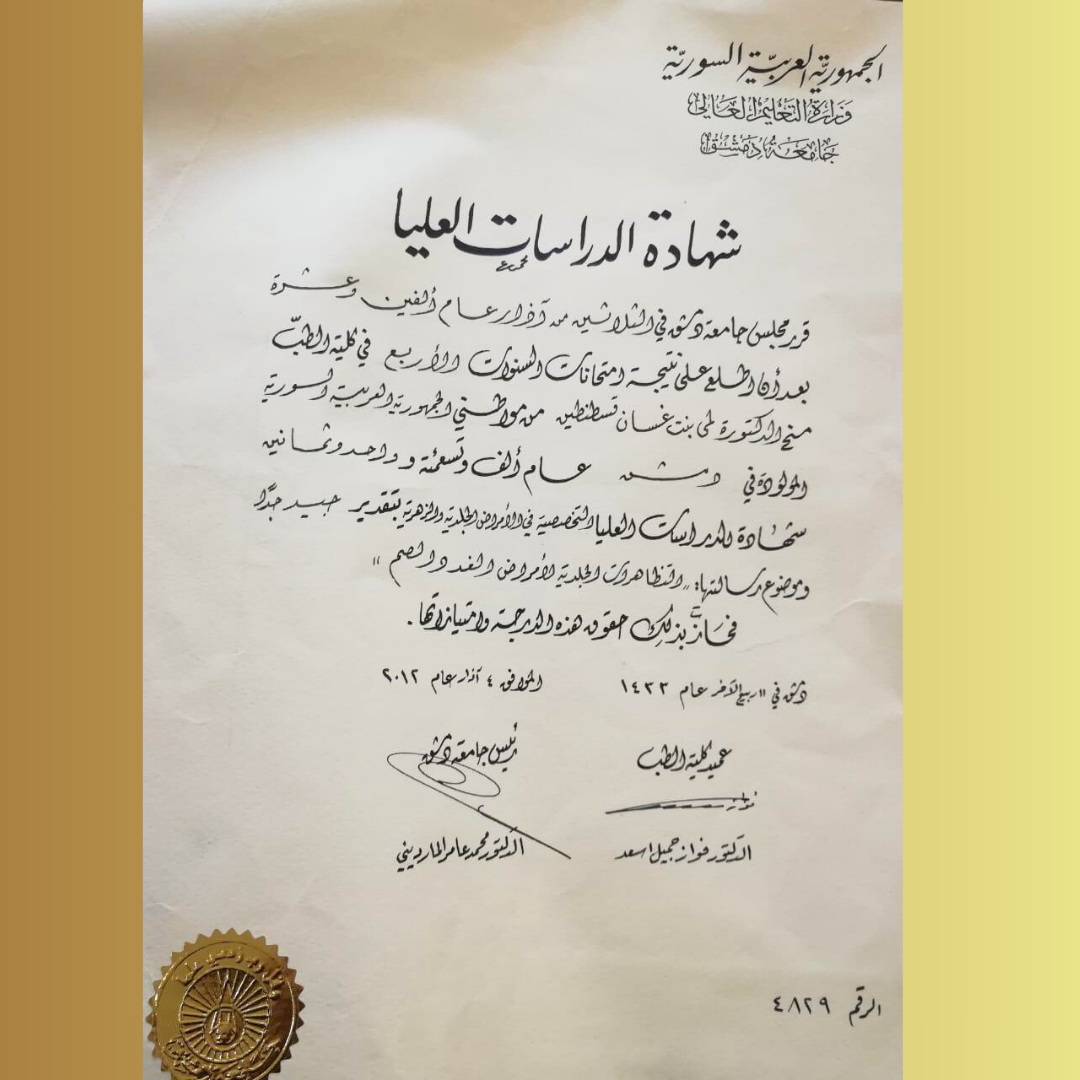 الجمهورية العربية السورية
وزارة التعليم العالي
جامعة دمشق
شهادة الدراسات العليا
قرر مجلس جامعة دمشق في الثلاثين من آذار عام ألفين وعشرة
بعد أن اطلع على نتيجة امتحانات السنوات الأربع في كلية الطبّ
منح الدكتورة لمى بنت غسان قسطنطين من مواطني الجمهورية العربية السورية
المولودة في دمشق عام ألف وتسعمئة وواحد وثمانين
شهادة الدراسات العليا التخصصية في الأمراض الجلدية والزهرية بتقدير جيد جدًا
وموضوع رسالتها: "التظاهرات الجلدية لأمراض الغدد الصم"
فحازت بذلك حقوق هذه الدرجة وامتيازاتها.
دمشق في ١١ ربيع الآخر عام ١٤٣٣ الموافق ٤ آذار عام ٢٠١٢
عميد كلية الطب رئيس جامعة دمشق
الدكتور فواز جميل اسعد الدكتور محمد عامر المارديني
الرقم ٤٨٢٩